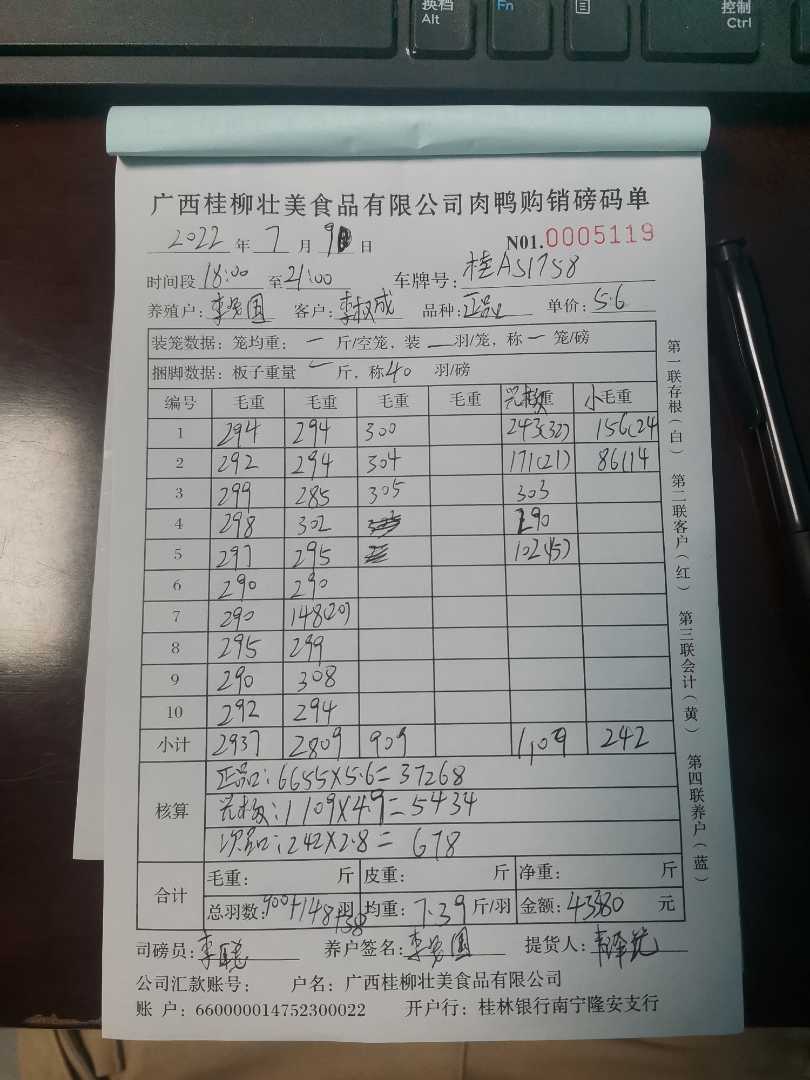 换档
Alt
Fn
控制
Ctrl
广西桂柳壮美食品有限公司肉鸭购销磅码单
2022 年 7 月 9 日 N01.0005119
时间段 18:00 至 21:00 车牌号: 桂A51758
养殖户: 国 客户: 李 成 品种: 正品 单价: 5.6
装笼数据: 笼均重: 一 斤/空笼, 装 一 羽/笼, 称 一 笼/磅
捆脚数据: 板子重量 一 斤, 称 40 羽/磅
编号 毛重 毛重 毛重 毛重 毛重 小毛重
1 294 294 300 243(32) 156(24
2 292 294 304 171(21) 86(14
3 299 285 305 303
4 298 302 290
5 297 295 102(15)
6 290 290
7 290 148(20)
8 295 299
9 290 308
10 292 294
小计 2937 2809 909 1,109 242
核算
正品: 6655×5.6=37268
1109×4.9=5434
次品: 242×2.8= 678
合计
毛重: 斤 皮重: 斤 净重: 斤
总羽数: 900+148+38 羽 均重: 7.39 斤/羽 金额: 43380 元
司磅员: 李 养户签名: 国 提货人:
公司汇款账号: 户名: 广西桂柳壮美食品有限公司
账 户: 660000014752300022 开户行: 桂林银行南宁隆安支行
第一联存根(白) 第二联客户(红) 第三联会计(黄) 第四联养户(蓝)